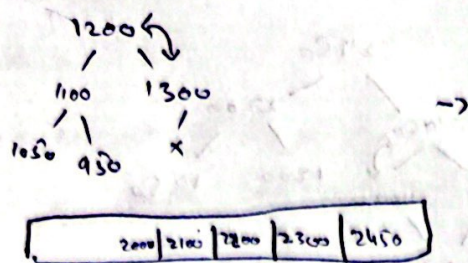 1200
1100 1300
1050 950 x
→
2000 | 2100 | 2200 | 2300 | 2450